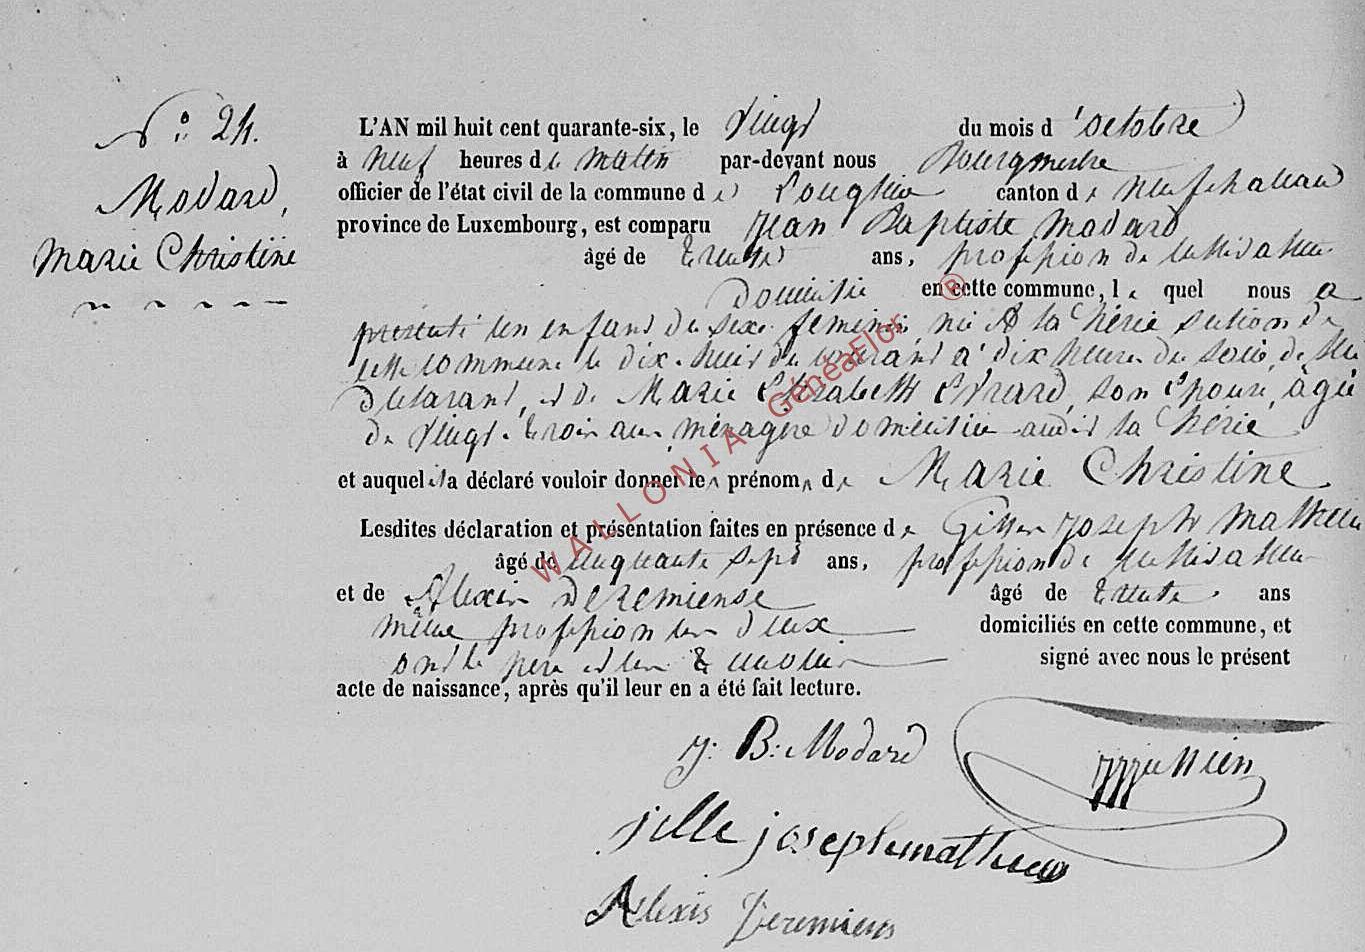 N° 24.
Modard,
Marie Christine
L'AN mil huit cent quarante-six, le vingt du mois d'octobre
à neuf heures du matin par-devant nous Bourgmestre
officier de l'état civil de la commune de Longlier canton de neufchateau
province de Luxembourg, est comparu Jean Baptiste Modard
âgé de trente ans, profession de cultivateur
domicilié en cette commune, lequel nous a
présenté un enfant du sexe feminin, né A la Hérie section de
cette commune le dix-huit du courant à dix heures du soir, de lui
déclarant, et de Marie Elisabeth Evrard, son Epouse, âgée
de vingt-trois ans, ménagère domiciliée audit la Hérie
et auquel il a déclaré vouloir donner les prénoms de Marie Christine
Lesdites déclaration et présentation faites en présence de Gilles Joseph Mathieu
âgé de cinquante sept ans, profession de cultivateur
et de Alexis Deremiense âgé de trente ans
même profession tous deux domiciliés en cette commune, et
ont le père et les témoins signé avec nous le présent
acte de naissance, après qu'il leur en a été fait lecture.
J: B: Modard
jille joseph mathieu
Alexis Deremiens
WALLONIA GénéaFlor ®